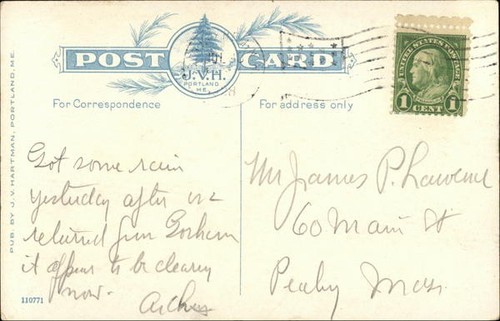 POST CARD
J.V.H.
PORTLAND
ME.
For Correspondence
For address only
UNITED STATES POSTAGE
1 CENT 1
PUB. BY J. V. HARTMAN, PORTLAND, ME.
Got some rain
yesterday after we
returned from Gorham
it appears to be clearing
now.
Mr James P. Lawrence
60 Main St
Peabody Mass.
110771